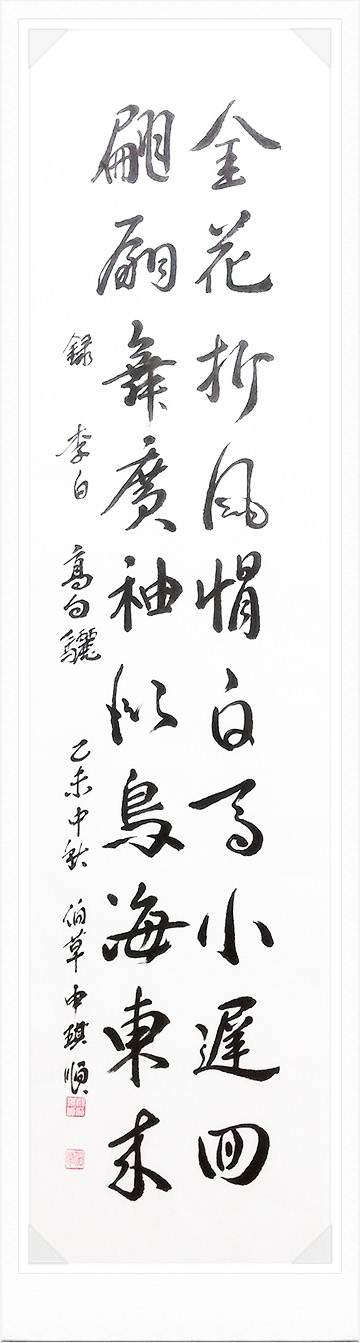 金花折風帽白馬小遲回
翩翩舞廣袖似鳥海東來
錄 李白 高句驪 乙未中秋 伯草 申琪順